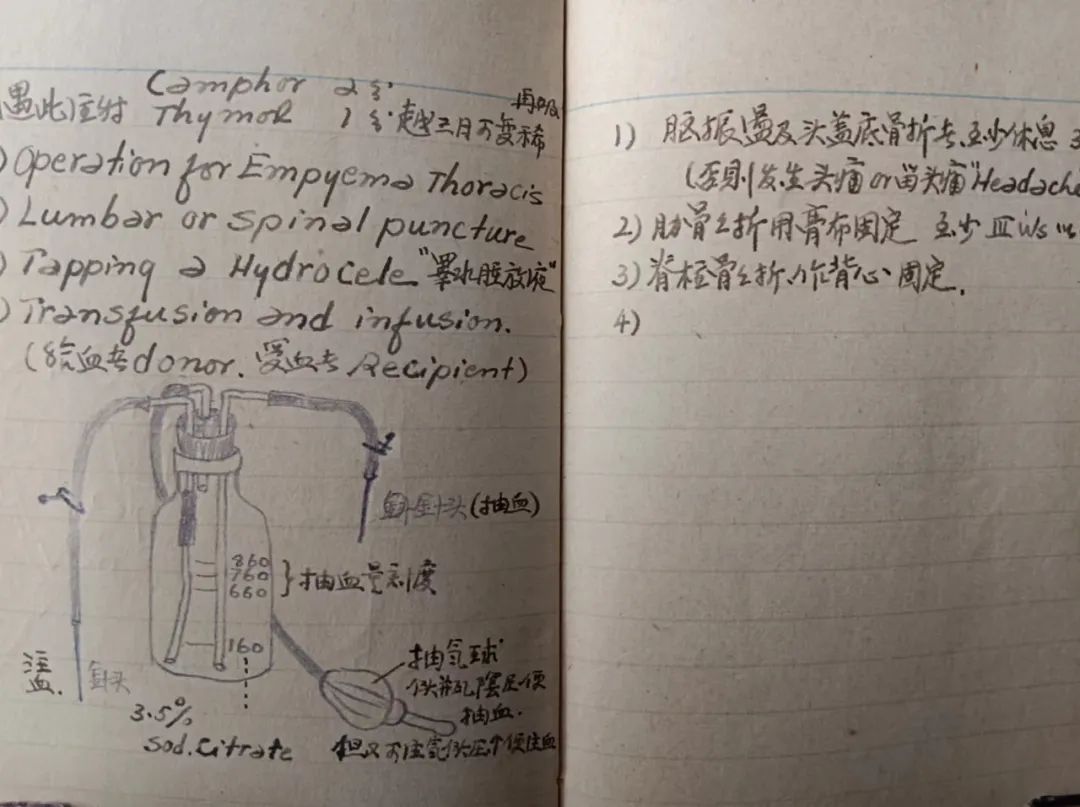 Camphor 2
遇此注射 Thymol 1 越三月可变稀
Operation for Empyema Thoracis
Lumbar or spinal puncture
Tapping a Hydrocele "睾水腫放液"
Transfusion and infusion.
(给血者donor. 受血者Recipient)
針头(抽血)
860
760
660
}抽血量刻度
160
注血.
針头
3.5%
Sod. Citrate
抽氣球
抽血.
1) 脑振盪及头盖底骨折者至少休息3
(否则发生头痛or留头痛"Headache
2) 肋骨之折用膏布固定 至少Ⅲ
3) 脊柱骨之折, 作背心固定.
4)